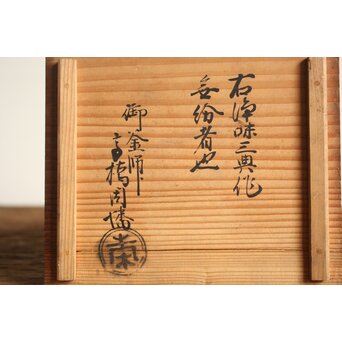 右浄味三典作
無紛者也
御釜師
高橋因幡